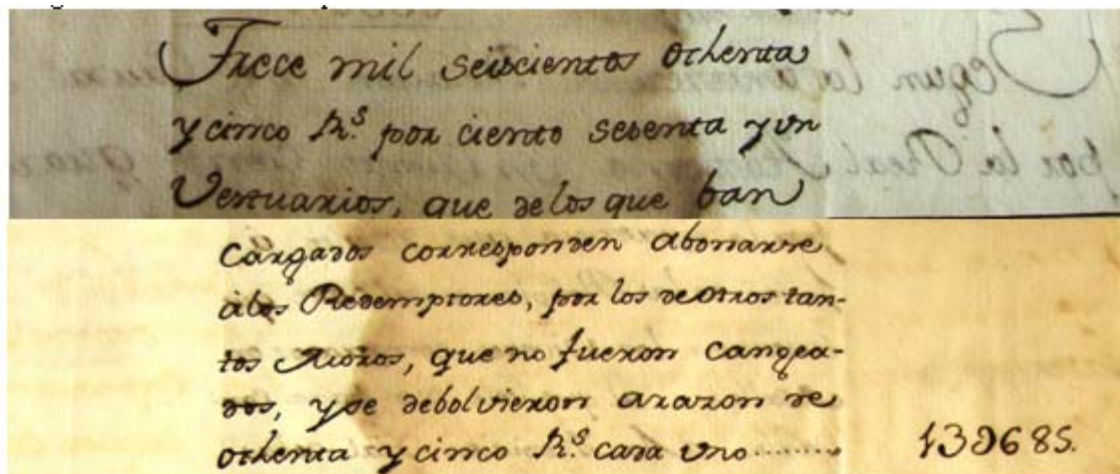 Trece mil seiscientos ochenta
y cinco R.^s por ciento sesenta y un
Vestuarios, que de los que ban
Cargados corresponden abonarse
alos Redemptores, por los de otros tan-
tos Moros, que no fueron cangea-
dos, y se debolvieron arazon de
ochenta y cinco R.^s cada uno......... 13D685.